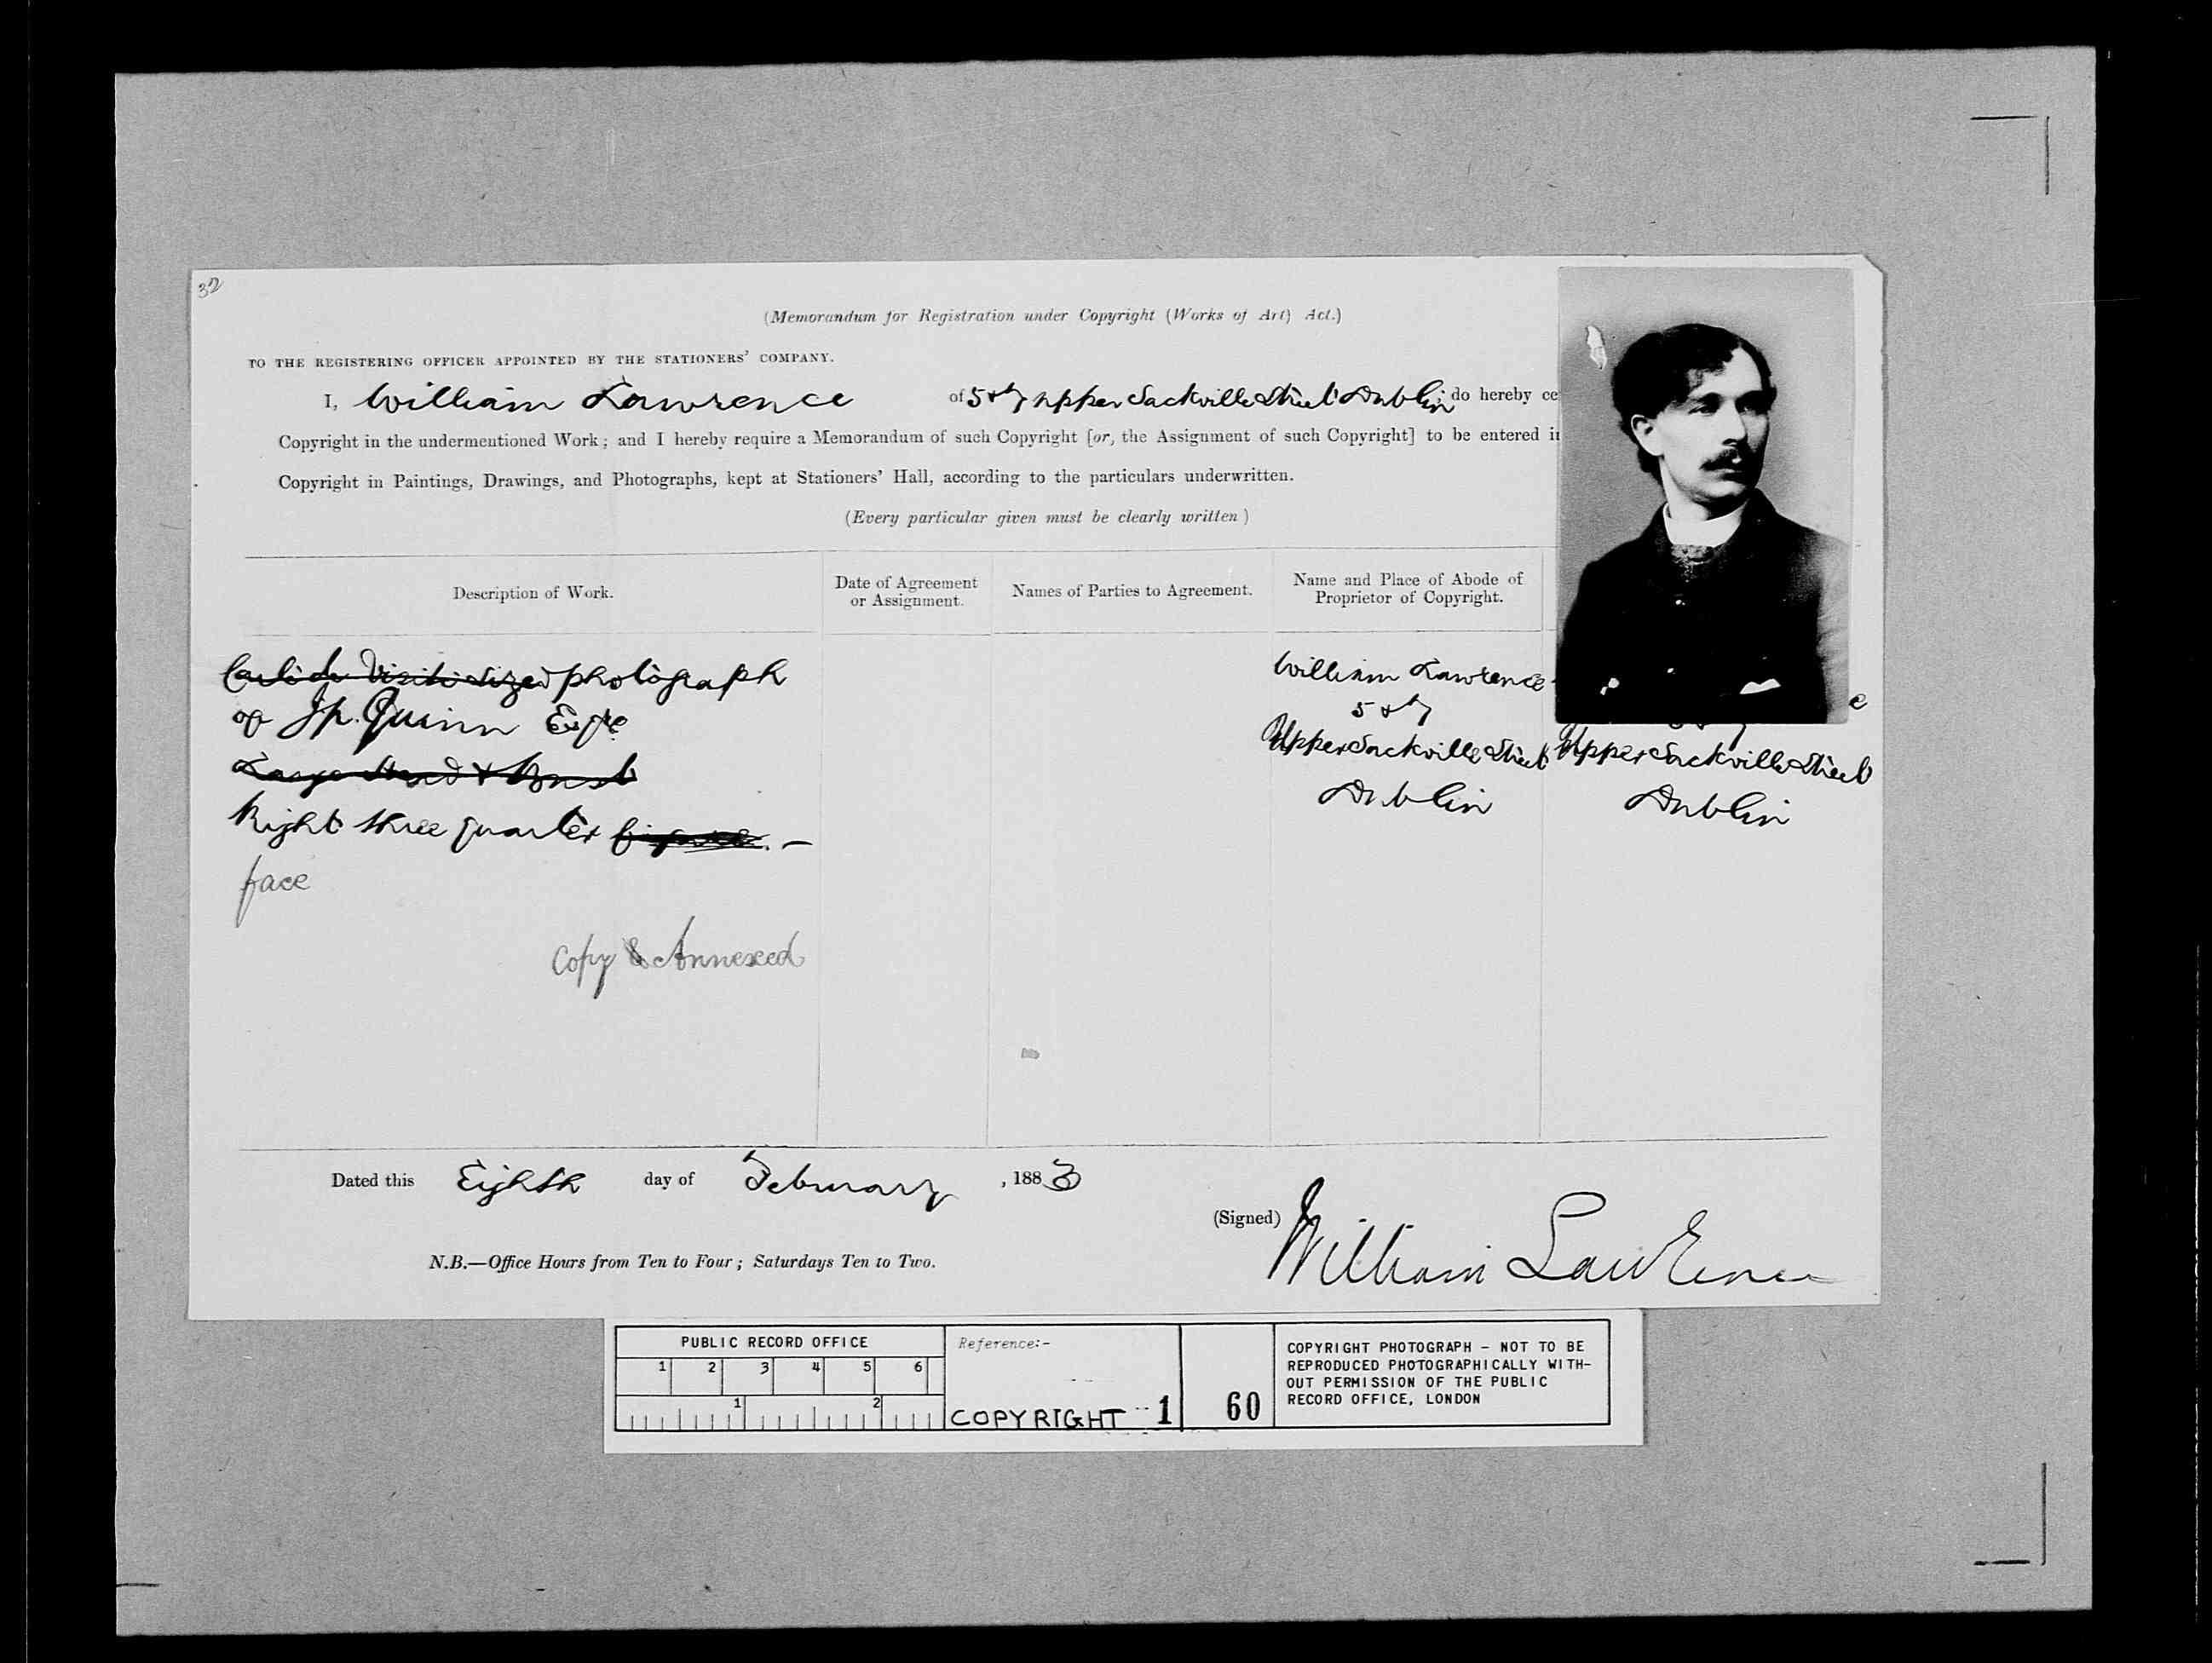 32
(Memorandum for Registration under Copyright (Works of Art) Act.)
TO THE REGISTERING OFFICER APPOINTED BY THE STATIONERS' COMPANY.
I, William Lawrence of 5 & 7 Upper Sackville Street Dublin; do hereby ce
Copyright in the undermentioned Work; and I hereby require a Memorandum of such Copyright [or, the Assignment of such Copyright] to be entered in
Copyright in Paintings, Drawings, and Photographs, kept at Stationers' Hall, according to the particulars underwritten.
(Every particular given must be clearly written)
Description of Work.
Date of Agreement
or Assignment.
Names of Parties to Agreement.
Name and Place of Abode of
Proprietor of Copyright.
Carte de Visite sized photograph
of J.P. Quinn Esqre
Large Head & Bust
Right three quarter figure. –
face
Copy Annexed
William Lawrence
5 & 7
Upper Sackville Street
Dublin
e
Upper Sackville Street
Dublin
Dated this Eighth day of February, 1883
(Signed) William Lawrence
N.B.—Office Hours from Ten to Four; Saturdays Ten to Two.
PUBLIC RECORD OFFICE
1 2 3 4 5 6
1 2
Reference:-
COPYRIGHT 1
60
COPYRIGHT PHOTOGRAPH - NOT TO BE
REPRODUCED PHOTOGRAPHICALLY WITH-
OUT PERMISSION OF THE PUBLIC
RECORD OFFICE, LONDON